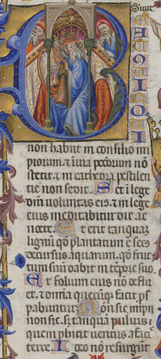 B
non habiit in consilio im
piorum et in via peccatorum no
stetit et in cathedra pestilen
tie non sedit. Set in lege
dñi voluntas eius et in lege
eius meditabitur die ac
nocte. Et erit tanquam
lignũ qđ plantatum ẽ secus
decursus aquarum. qđ fruc
tum suũ dabit in tẽpore suo
Et folium eius nõ deflu
et. et omia quecũqꝫ faciet ꝓsp
abuntur. Non sic impii
non sic. set tanquam pulvis
quem proicit ventus a facie
terre. Ideo nõ resurgũt